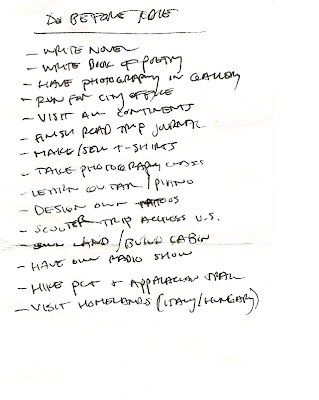 DO BEFORE I DIE
- WRITE NOVEL
- WRITE BOOK OF POETRY
- HAVE PHOTOGRAPHY IN GALLERY
- RUN FOR CITY OFFICE
- VISIT ALL CONTINENTS
- FINISH ROAD TRIP JOURNAL
- MAKE/SELL T-SHIRTS
- TAKE PHOTOGRAPHY CLASS
- LEARN GUITAR/PIANO
- DESIGN OWN TATTOOS
- SCOOTER TRIP ACROSS U.S.
- OWN LAND/BUILD CABIN
- HAVE OWN RADIO SHOW
- HIKE PCT + APPALACIAN TRAIL
- VISIT HOMELANDS (ITALY/HUNGARY)